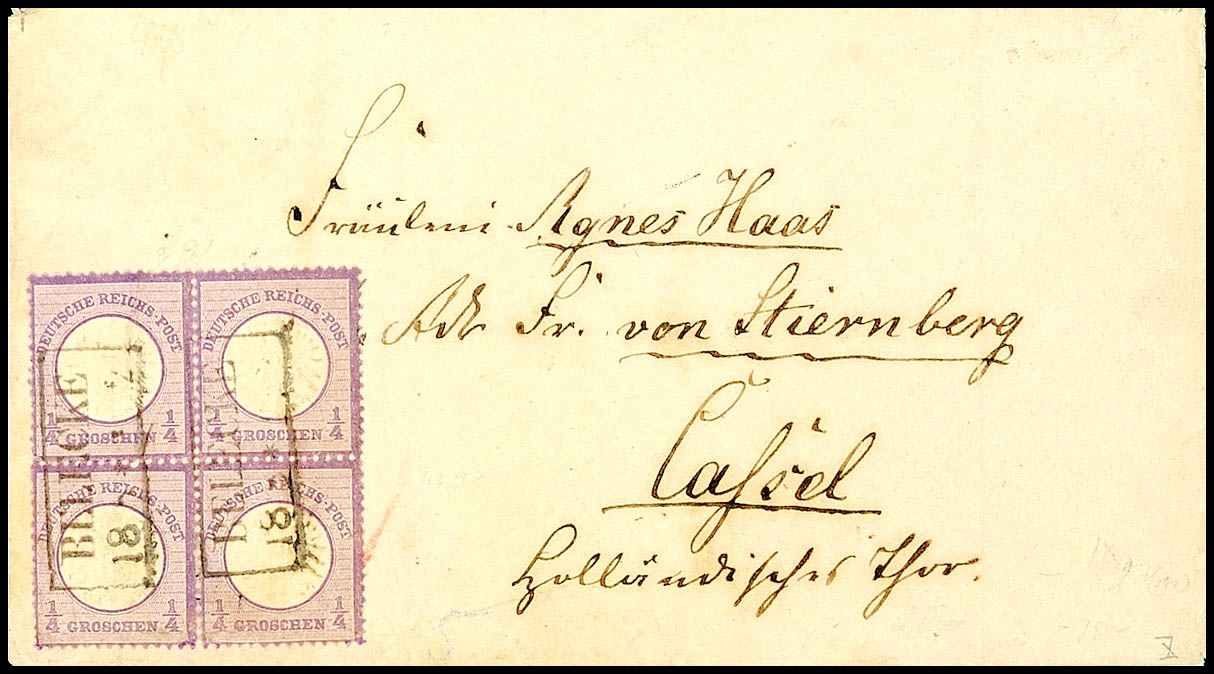 Fräulein Agnes Haas
Adr Fr. von Stiernberg
Cassel
Holländisches Thor.
DEUTSCHE REICHS-POST
1/4 GROSCHEN 1/4
DEUTSCHE REICHS-POST
1/4 GROSCHEN 1/4
DEUTSCHE REICHS-POST
1/4 GROSCHEN 1/4
DEUTSCHE REICHS-POST
1/4 GROSCHEN 1/4
BELECKE
18 *
BELECKE
18 *